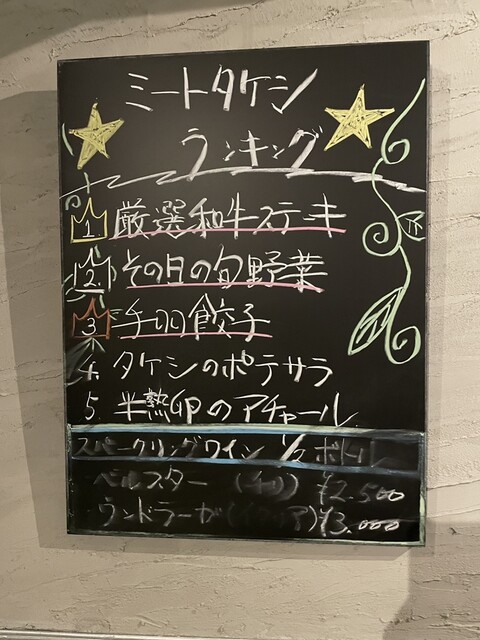 ミートタケシ
ランキング
1 厳選和牛ステーキ
2 その日の旬野菜
3 手羽餃子
4. タケシのポテサラ
5. 半熟卵のアチャール
スパークリングワイン 1/2 ボトル
ベルスター (チリ) ¥2.500
ウンドラーガ ¥3.000